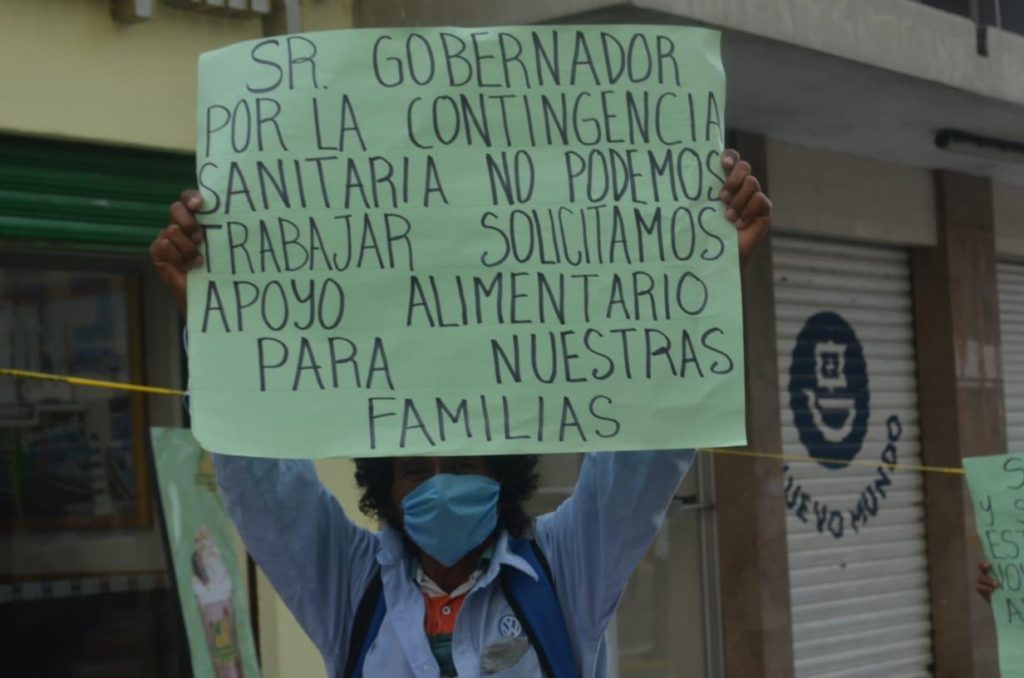 SR. GOBERNADOR
POR LA CONTINGENCIA
SANITARIA NO PODEMOS
TRABAJAR SOLICITAMOS
APOYO ALIMENTARIO
PARA NUESTRAS
FAMILIAS
NUEVO MUNDO